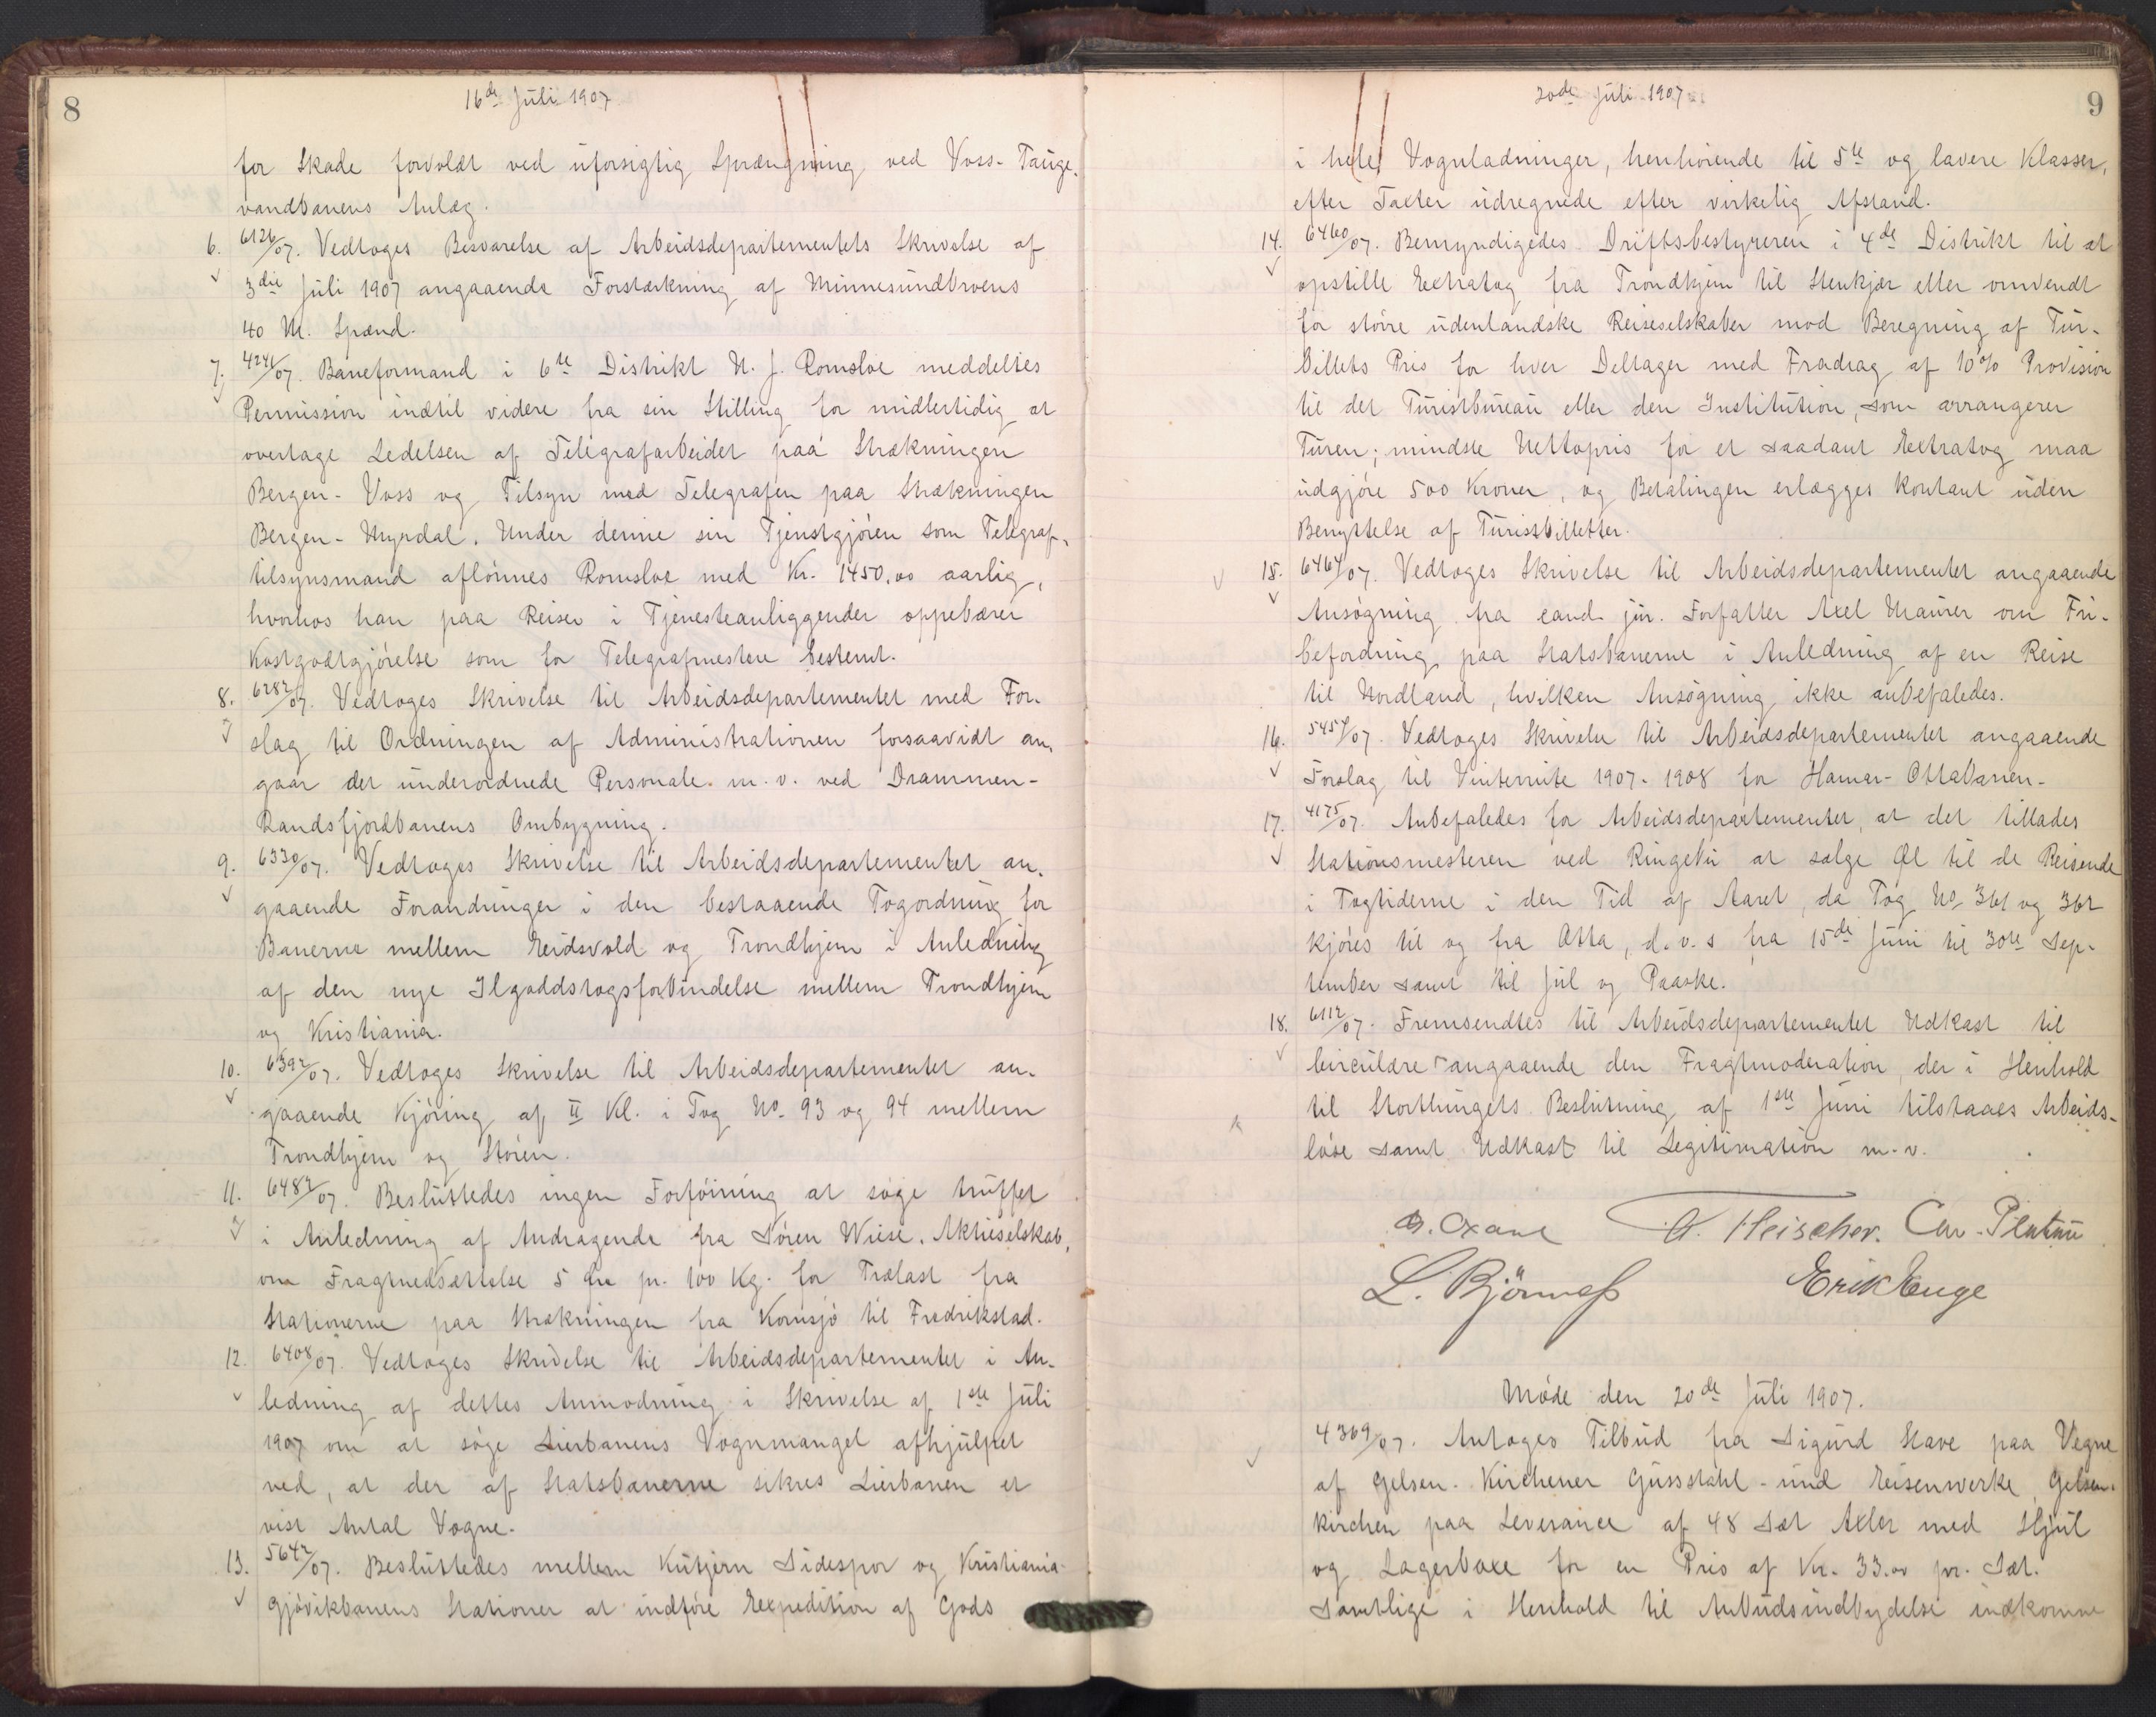 8
16de Juli 1907
for Skade forvoldt ved uforsigtig Sprængning ved Voss-Tauge-
vandbanens Anlæg.
6. 6126/07. Vedtoges Besvarelse af Arbeidsdepartementets Skrivelse af
3die Juli 1907 angaaende Forstærkning af Minnesundbroens
40 M. Spænd.
7. 4241/07. Baneformand i 6te Distrikt N. J. Romsloe meddeltes
Permission indtil videre fra sin Stilling for midlertidig at
overtage Ledelsen af Telegrafarbeidet paa Strækningen
Bergen-Voss og Tilsyn med Telegrafen paa Strækningen
Bergen-Myrdal. Under denne sin Tjenstgjøren som Telegraf-
tilsynsmand aflønnes Romsloe med Kr. 1450.00 aarlig,
hvorhos han paa Reiser i Tjenesteanliggender oppebærer
Kostgodtgjørelse som for Telegrafmestere bestemt.
8. 6282/07. Vedtoges Skrivelse til Arbeidsdepartementet med For-
slag til Ordningen af Administrationen forsaavidt an-
gaar det underordnede Personale m.v. ved Drammen-
Randsfjordbanens Ombygning.
9. 6330/07. Vedtoges Skrivelse til Arbeidsdepartementet an-
gaaende Forandringer i den bestaaende Togordning for
Banerne mellem Eidsvold og Trondhjem i Anledning
af den nye Ilgodstogsforbindelse mellem Trondhjem
og Kristiania.
10. 6392/07. Vedtoges Skrivelse til Arbeidsdepartementet an-
gaaende Kjøring af II Kl. i Tog No. 93 og 94 mellem
Trondhjem og Støren.
11. 6483/07. Besluttedes ingen Forføining at søge truffet
i Anledning af Andragende fra Søren Wiese, Aktieselskab,
om Fragtnedsættelse 5 Øre pr. 100 Kg. for Trælast fra
Stationerne paa Strækningen fra Kornsjø til Fredrikstad.
12. 6408/07. Vedtoges Skrivelse til Arbeidsdepartementet i An-
ledning af dettes Anmodning i Skrivelse af 1ste Juli
1907 om at søge Lierbanens Vognmangel afhjulpet
ved, at der af Statsbanerne sikres Lierbanen et
vist Antal Vogne.
13. 5642/07. Besluttedes mellem Kutjern Sidespor og Kristiania-
Gjøvikbanens Stationer at indføre Expedition af Gods
9
20de Juli 1907
i hele Vognladninger, henhørende til 5te og lavere Klasser,
efter Taxter udregnede efter virkelig Afstand.
14. 6460/07. Bemyndigedes Driftsbestyreren i 4de Distrikt til at
opstille Extratog fra Trondhjem til Stenkjær eller omvendt
for større udenlandske Reiseselskaber mod Beregning af Tur-
billets Pris for hver Deltager med Fradrag af 10% Provision
til det Turistbureau eller den Institution, som arrangerer
Turen; mindste Nettopris for et saadant Extratog maa
udgjøre 500 Kroner, og Betalingen erlægges kontant uden
Benyttelse af Turistbilletter.
15. 6464/07. Vedtoges Skrivelse til Arbeidsdepartementet angaaende
Ansøgning fra cand. jur. Forfatter Axel Maurer om Fri-
befordring paa Statsbanerne i Anledning af en Reise
til Nordland, hvilken Ansøgning ikke anbefaledes.
16. 5454/07. Vedtoges Skrivelse til Arbeidsdepartementet angaaende
Forslag til Vinterrute 1907-1908 for Hamar-Ottabanen-
17. 4175/07. Anbefaledes for Arbeidsdepartementet, at det tillades
Stationsmesteren ved Ringebu at sælge Øl til de Reisende
i Togtiderne i den Tid af Aaret, da Tog No 361 og 362
kjøres til og fra Otta, d.v.s fra 15de Juni til 30te Sep-
tember samt til Jul og Paaske.
18. 6112/07. Fremsendtes til Arbeidsdepartementet Udkast til
Circulære angaaende den Fragtmoderation, der i Henhold
til Storthingets Beslutning af 1ste Juni tilstaaes Arbeids-
løse samt Udkast til Legitimation m.v.
A. Fleischer. Chr. Platou
L. Bjørnneß Erik Enge
Møde den 20de Juli 1907.
4369/07. Antoges Tilbud fra Sigurd Stave paa Vegne
af Gelsen-Kirchener Gussstahl- und Eisenwerke, Gelsen-
kirchen paa Leverance af 48 Sæt Axler med Hjul
og Lagerboxe for en Pris af Kr. 33.00 pr. Sæt.
Samtlige i Henhold til Anbudsindbydelse indkomne